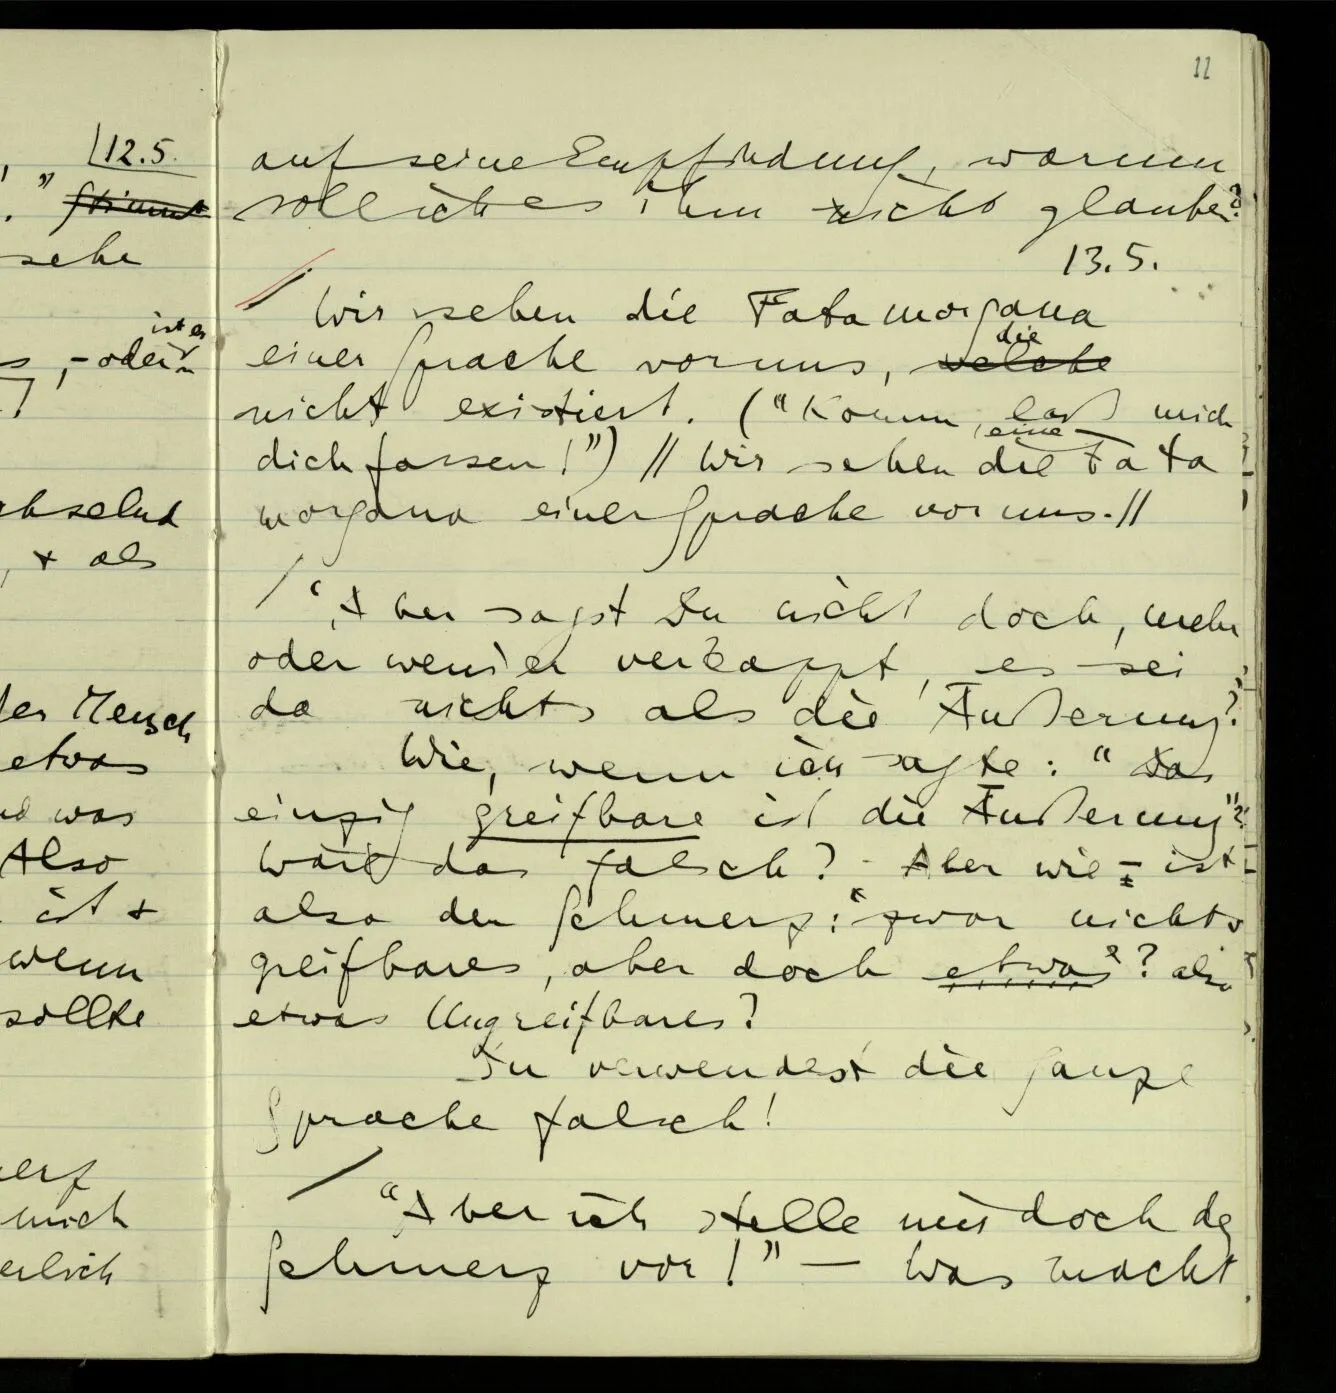 11
12.5.
" stimmt
sehe
ist es
, – oder
+ als
der Mensch
etwas
was
Also
ist +
wenn
sollte
mich
auf seine Empfindung, warum
soll ich es ihm nicht glauben?
13.5.
/ Wir sehen die Fata morgana
die
einer Sprache vor uns, welche
nicht existiert. ("Komm, laß mich
eine
dich fassen!") // Wir sehen die Fata
morgana einer Sprache vor uns. //
/ "Aber sagst Du nicht doch, mehr
oder weniger verkappt, es sei
da nichts als die Äußerung?
Wie, wenn ich sagte: "Das
einzig greifbare ist die Äußerung"?
wäre das falsch? – Aber wie – ist
also der Schmerz: "zwar nichts
greifbares, aber doch etwas"? also
etwas Ungreifbares?
Du verwendest die ganze
Sprache falsch!
/ "Aber ich stelle mir doch den
Schmerz vor!" – Was macht